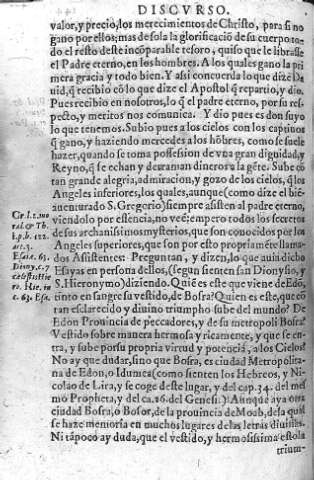 DISCVRSO.
valor, y precio, los merecimientos de Christo, para si no
gano por ellos; mas de sola la glorificació de su cuerpo: to
do el resto deste incóparable tesoro, quiso que le librasse
el Padre eterno, en los hombres. A los quales gano la pri
mera gracia y todo bien. Y asi concuerda lo que dize Da
uid, q̃ recibio có lo que dize el Apostol q̃ repartio, y dio.
Pues recibio en nosotros, lo q̃ el padre eterno, por su res-
pecto, y meritos nos comunica. Y dio pues es don suyo
lo que tenemos. Subio pues a los cielos con los captiuos
q̃ gano, y haziendo mercedes a los hóbres, como se suele
hazer, quando se toma possession de vna gran dignidad, y
Reyno, q̃ se echan y derraman dineros a la géte. Sube có
tan grande alegria, admiracion, y gozo de los cielos, q̃ los
Angeles inferiores, los quales, aunque (como dize el bié-
auenturado S. Gregorio) siempre asisten al padre eterno,
viendolo por essencia, no veé; empero todos los secretos
de sus archanissimos mysterios, que son conocidos por los
Angeles superiores, que son por esto propriaméte llama-
dos Assistentes: Preguntan, y dizen, lo que auia dicho
Esayas en persona dellos, (segun sienten san Dionysio, y
S. Hieronymo) diziendo. Quié es este que viene de Edó,
tinto en sangre su vestido, de Bosra? Quien es este, que có
tan esclarecido y diuino triumpho sube del mundo? De
Edon Prouincia de peccadores, y de su metropoli Bosra?
Vestido sobre manera hermosa y ricamente, y que se en-
tra, y sube por su propria virtud y potencia, a los Cielos?
No ay que dudar, sino que Bosra, es ciudad Metropolita-
na de Edon, o Idumea (como sienten los Hebreos, y Ni-
colao de Lira, y se coge deste lugar, y del cap. 34. del mes
mo Propheta, y del ca. 26. del Genesi.) Aunque aya otra
ciudad Bosra, o Bosor, de la prouincia de Moab, de la qual
se haze memoria en muchos lugares de las letras diuinas.
Ni tápoco ay duda, que el vestido, y hermosissima estola
trium-
Gr. l. 2. mo
ral. & Th.
1. p. q. 112.
art. 3.
Esai. 63.
Diony. c. 7
cœlest. hie
ro. Hie. in
c. 63. Esa.